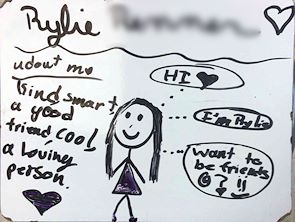 Rylie
udout me
Kind smart
a good
friend, cool,
a loving
person.
HI
I'm Rylie
Want to
be friends
? !!